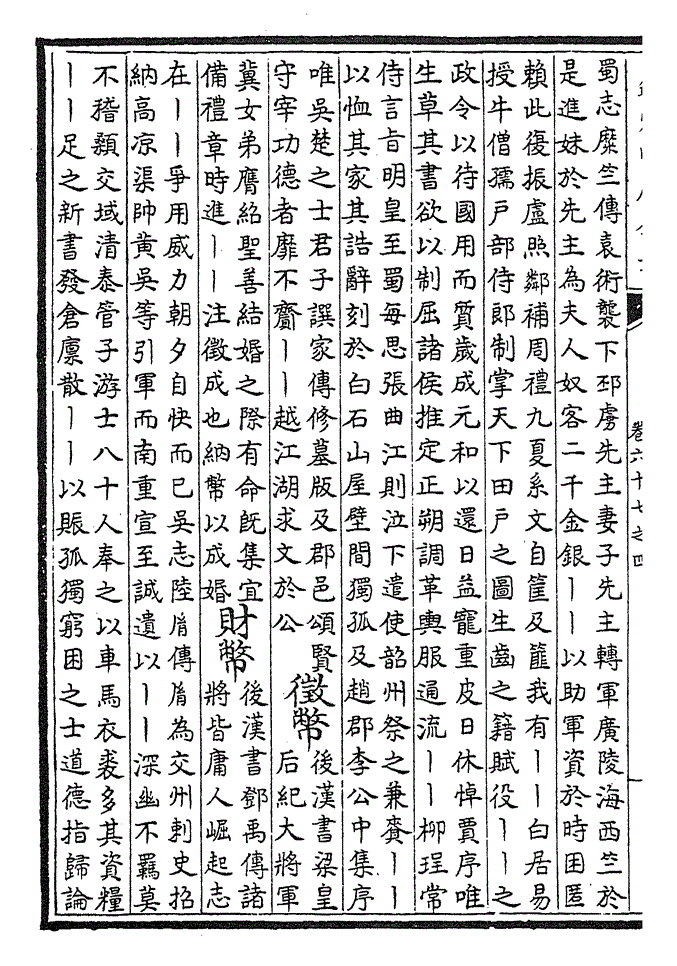 卷六十七之四
蜀志糜竺傳袁術襲下邳虜先主妻子先主轉軍廣陵海西竺於
是進妹於先主為夫人奴客二千金銀丨丨以助軍資於時困匱
賴此復振盧照鄰補周禮九夏系文自筐及篚我有丨丨白居易
授牛僧孺戶部侍郎制掌天下田戶之圖生齒之籍賦役丨丨之
政令以待國用而質歲成元和以還日益寵重皮日休悼賈序唯
生草其書欲以制屈諸侯推定正朔調革輿服通流丨丨柳珵常
侍言旨明皇至蜀每思張曲江則泣下遣使韶州祭之兼賫丨丨
以恤其家其誥辭刻於白石山屋壁間獨孤及趙郡李公中集序
唯吳楚之士君子譔家傳修墓版及郡邑頌賢
守宰功德者靡不齎丨丨越江湖求文於公
徵幣
後漢書梁皇
后紀大將軍
冀女弟膺紹聖善結婚之際有命既集宜
備禮章時進丨丨注徵成也納幣以成婚
財幣
後漢書鄧禹傳諸
將皆庸人崛起志
在丨丨爭用威力朝夕自快而已吳志陸胤傳胤為交州刺史招
納高凉渠帥黃吳等引軍而南重宣至誠遺以丨丨深幽不羈莫
不稽顙交域清泰管子游士八十人奉之以車馬衣裘多其資糧
丨丨足之新書發倉廩散丨丨以賑孤獨窮困之士道德指歸論